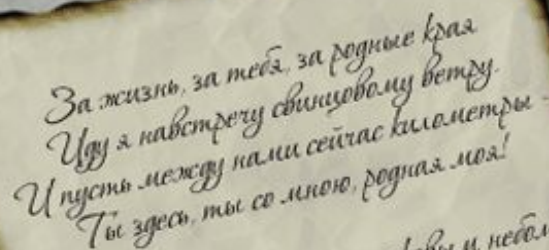 За жизнь, за тебя, за родные края
Иду я навстречу свинцовому ветру.
И пусть между нами сейчас километры -
Ты здесь, ты со мною, родная моя!